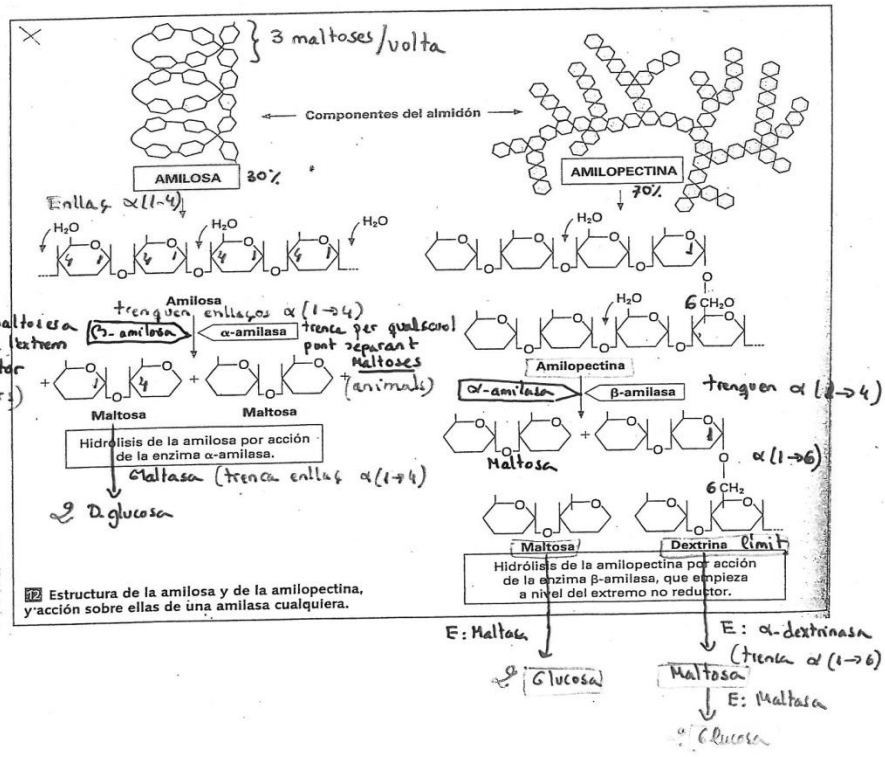 3 maltoses/volta
Componentes del almidón
AMILOSA 30%
AMILOPECTINA
70%
Enllaç α(1-4)
H₂O
H₂O
H₂O
H₂O
4 1 4 1 4 1 4 1
O O O O O O O
1
O
6 CH₂O
H₂O
Amilosa
trenquen enllaços α(1→4)
β-amilosa
α-amilasa
trenca per qualsevol
punt separant
Maltoses
(animals)
extrem
1 4
+ + +
Maltosa
Maltosa
Amilopectina
α-amilasa
β-amilasa
trenquen α(1→4)
Hidrólisis de la amilosa por acción
de la enzima α-amilasa.
Maltasa (trenca enllaç α(1→4)
2 D-glucosa
Maltosa
+
1
O
α(1→6)
6 CH₂
Maltosa
Dextrina límit
Hidrólisis de la amilopectina por acción
de la enzima β-amilasa, que empieza
a nivel del extremo no reductor.
12 Estructura de la amilosa y de la amilopectina,
y acción sobre ellas de una amilasa cualquiera.
E: Maltasa
2 Glucosa
E: α-dextrinasa
(trenca α(1→6)
Maltosa
E: Maltasa
Glucosa